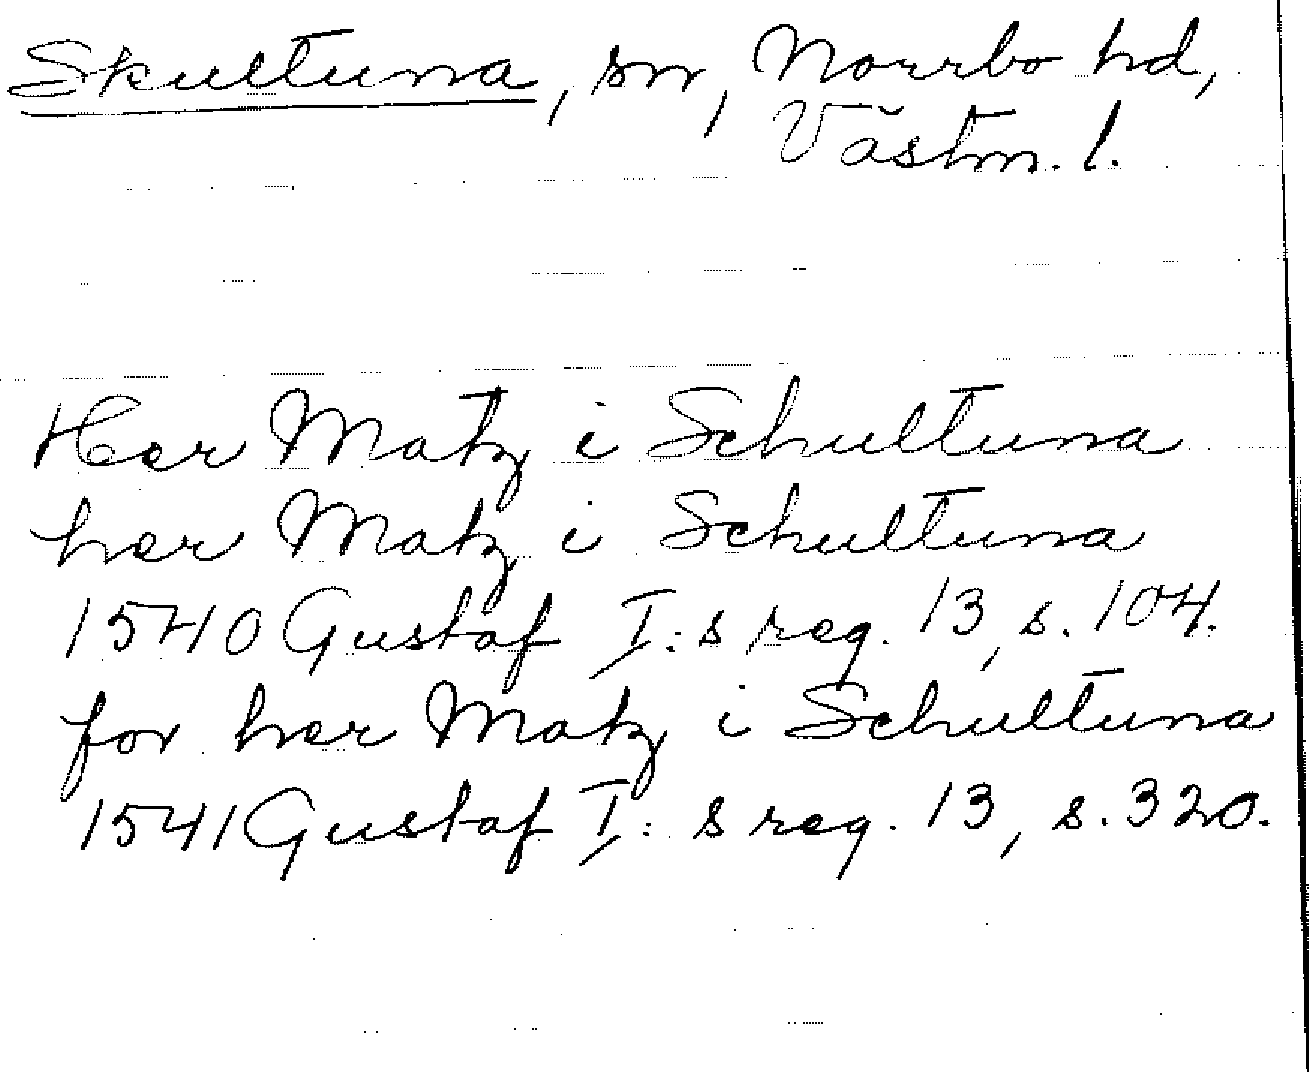 Skultuna, sn, Norrbo hd,
Västm. l.
Her Matz i Schultuna
her Matz i Schultuna
1540 Gustaf I:s reg. 13, s. 104.
for her Matz i Schultuna
1541 Gustaf I:s reg. 13, s. 320.